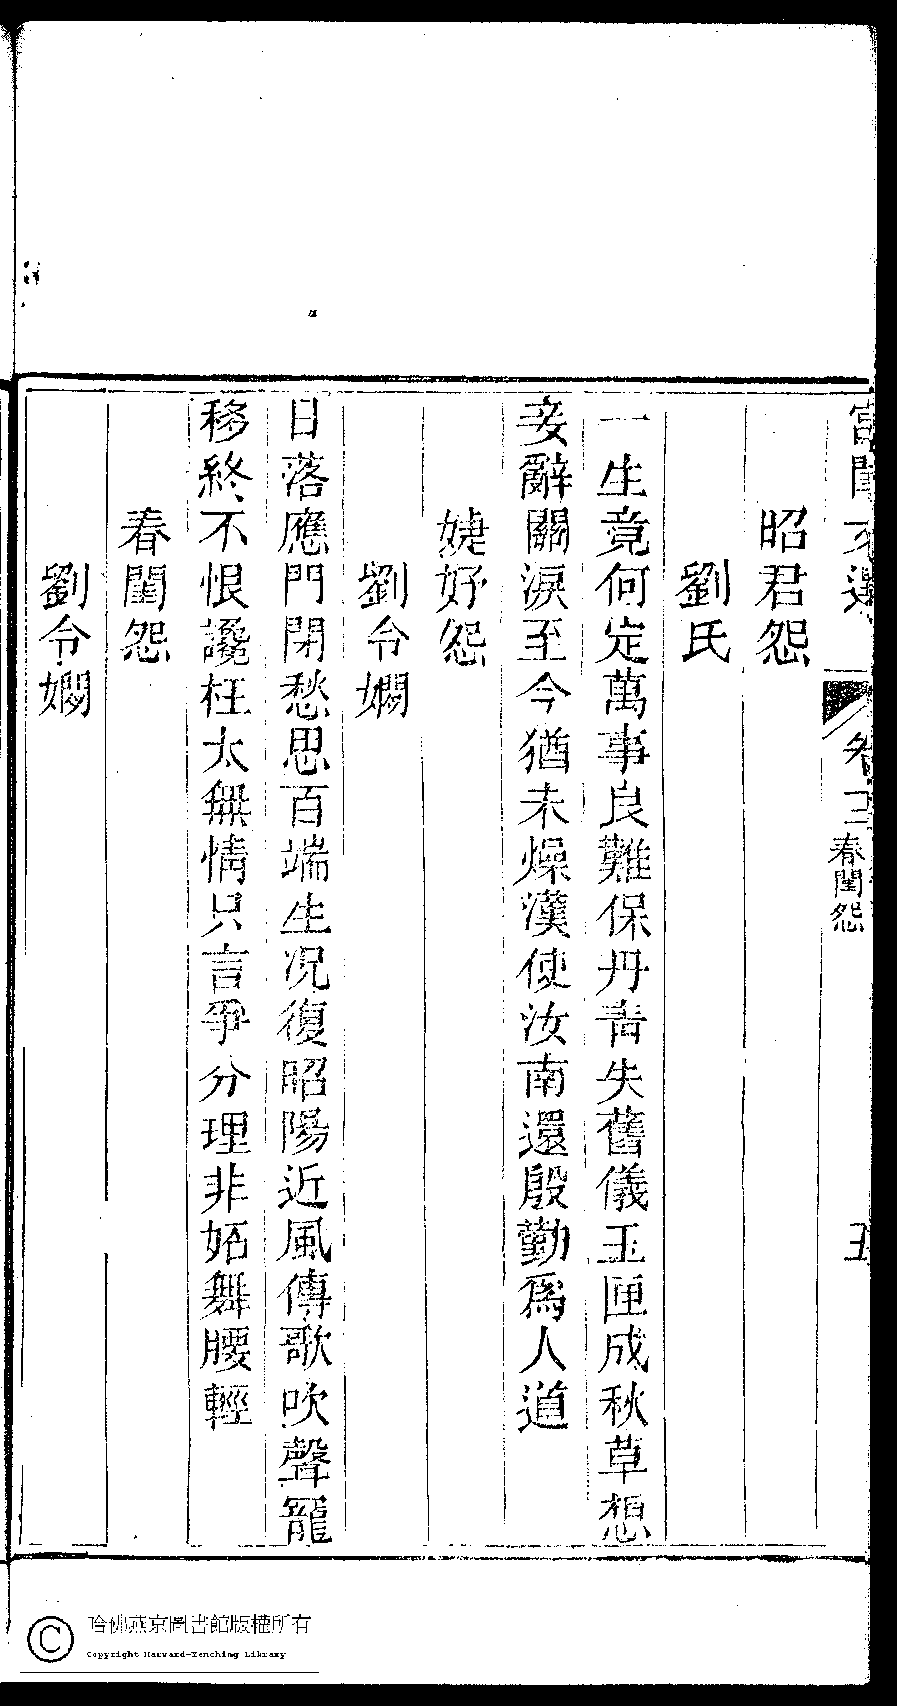 宮閨文選 卷二 春閨怨 五
昭君怨
劉氏
一生竟何定萬事良難保丹青失舊儀玉匣成秋草想
妾辭關淚至今猶未燥漢使汝南還殷勤為人道
婕妤怨
劉令嫺
日落應門閉愁思百端生况復昭陽近風傳歌吹聲寵
移終不恨讒枉太無情只言爭分理非妬舞腰輕
春閨怨
劉令嫺
哈佛燕京圖書館版權所有
Copyright Harvard-Yenching Library